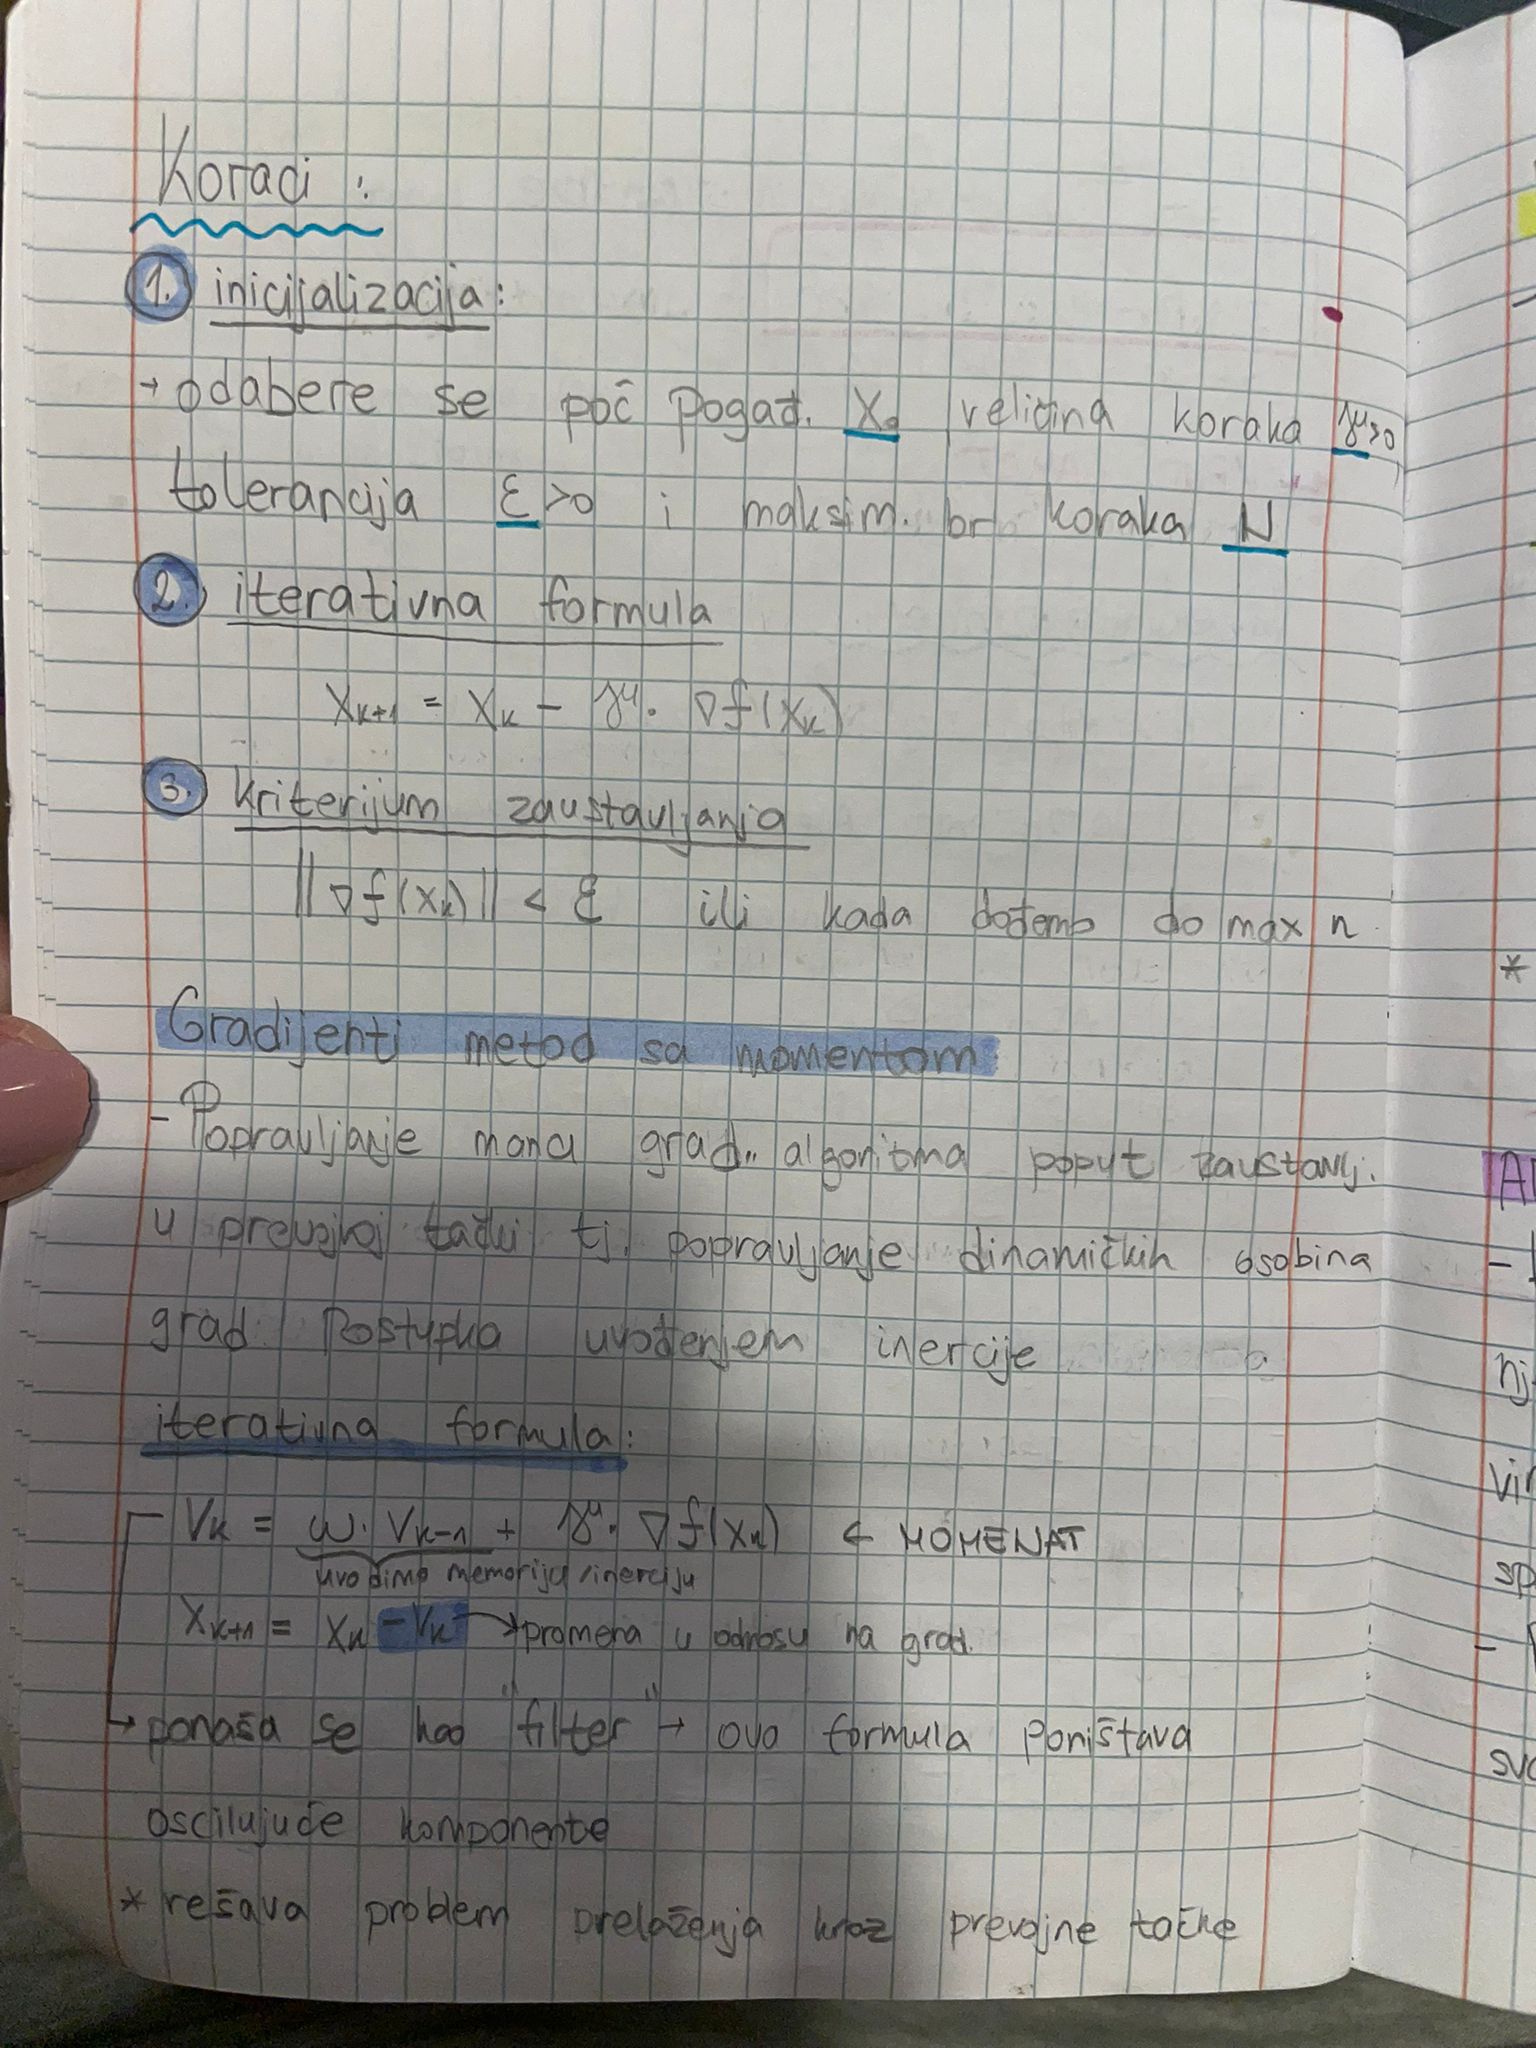 Koraci :
1. inicijalizacija:
→ odabere se poč pogađ. X₀ veličina koraka γ>0
tolerancija ε>0 i maksim. br koraka N
2. iterativna formula
Xₖ₊₁ = Xₖ - γ · ∇f(Xₖ)
3. kriterijum zaustavljanja
||∇f(xₖ)|| < ε ili kada dođemo do max n
Gradijenti metod sa momentom
- Popravljanje mana grad. algoritma poput zaustavlj.
u prevojnoj tački tj. popravljanje dinamičkih osobina
grad. Postupka uvođenjem inercije
iterativna formula:
Vₖ = ω · Vₖ₋₁ + γ · ∇f(xₖ) ← MOMENAT
uvodimo memoriju/inerciju
Xₖ₊₁ = Xₖ - Vₖ → promena u odnosu na grad.
→ ponaša se kao "filter" → ova formula poništava
oscilujuće komponente
* rešava problem prelaženja kroz prevojne tačke
*
- 
nj
vir
sp
-
svo